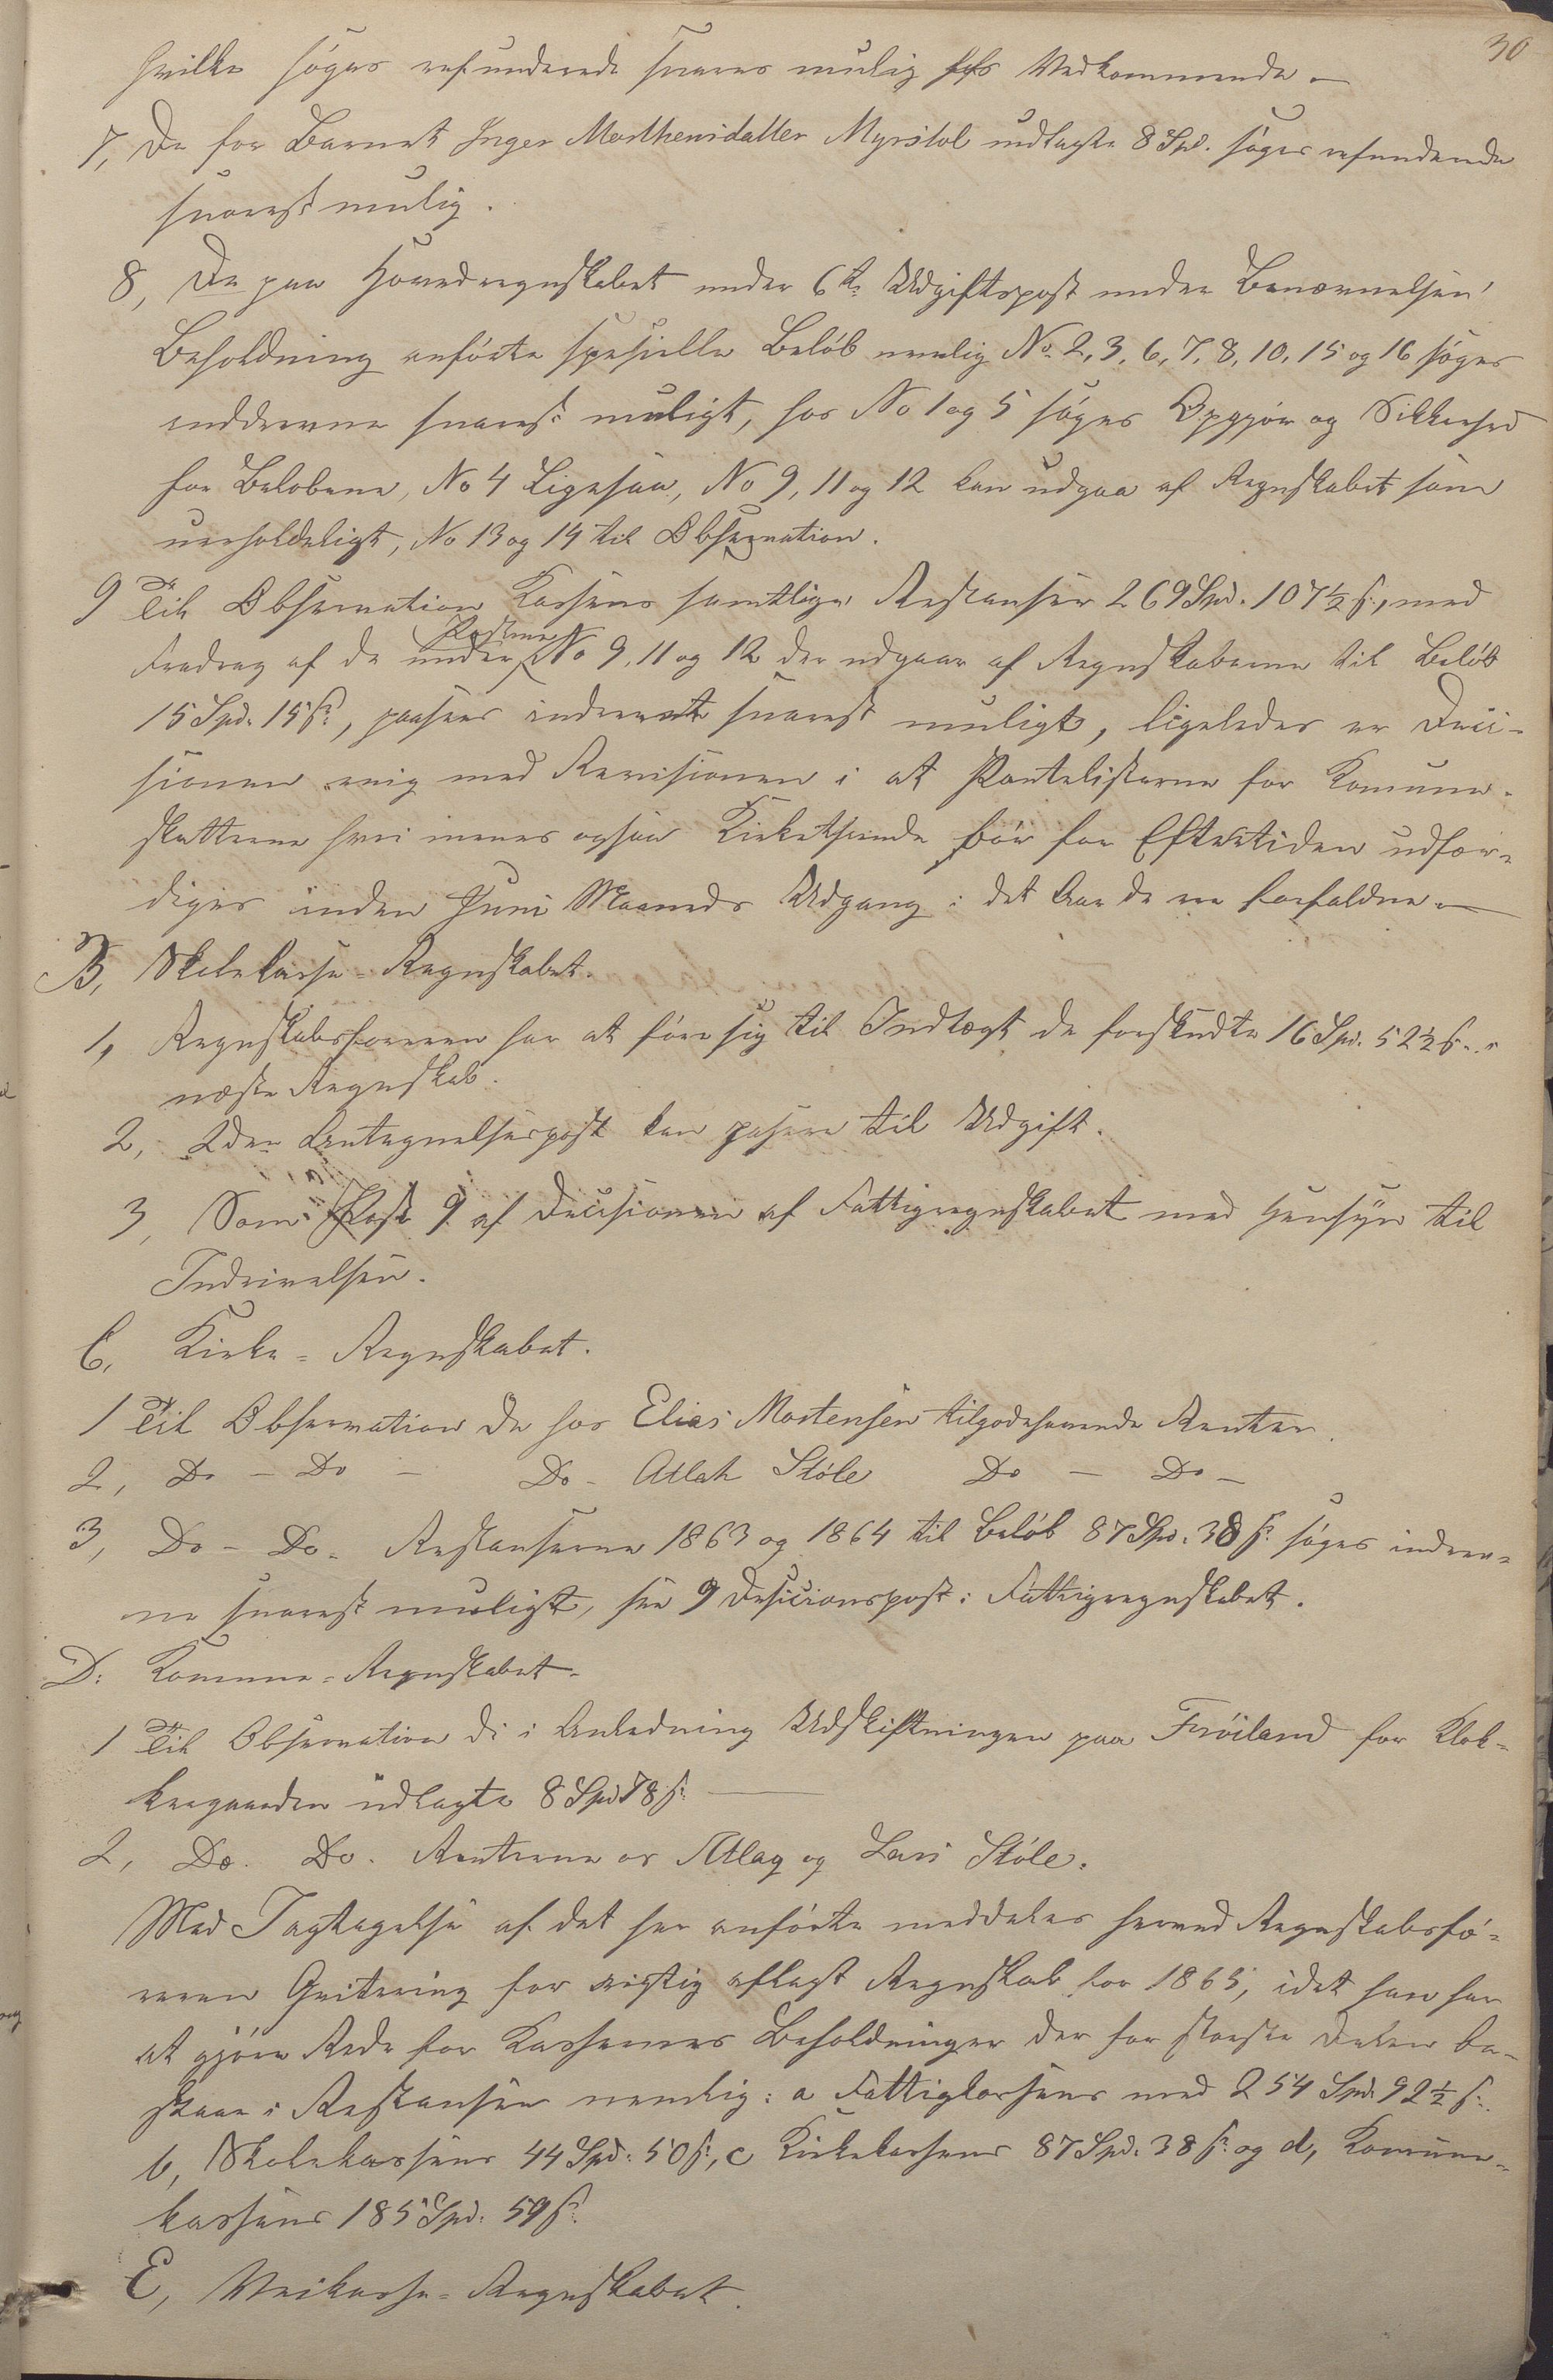 30
hvilke søges refunderede snarest mulig hos Vedkommende. —
7, De for Barnet Inger Morthensdatter Myrstol udlagte 8 Spd. søges refunderede
snarest mulig.
8, De paa Hovedregnskabet under 6te Udgiftspost under Benævnelsen
Beholdning anførte specielle Beløb nemlig No. 2, 3, 6, 7, 8, 10, 15 og 16 søges
inddrevne snarest muligt, hos No 1 og 5 søges Opgjør og Sikkerhed
for Beløbene, No 4 Ligesaa, No 9, 11 og 12 kan udgaa af Regnskabet som
uerholdeligt, No 13 og 14 til Observation.
9 Til Observation Kassens samtlige Restanser 269 Spd. 107½ s., med
Fradrag af de under Posterne No 9, 11 og 12 der udgaar af Regnskaberne til Beløb
15 Spd. 15 s., paasees inddrevet snarest muligt, ligeledes er Deci-
sionen enig med Revisionen i at Pantelisterne for Komune-
skatterne hvori menes ogsaa Kirketiende bør for Eftertiden udfær-
diges inden Juni Maaneds Udgang i det Aar de ere forfaldne. —
B, Skolekasse-Regnskabet.
1, Regnskabsføreren har at føre sig til Indtægt de forskudte 16 Spd. 52½ s. i
næste Regnskab.
2, 2den Antegnelsespost kan passere til Udgift.
3, Som Post 9 af Decisionen af Fattigregnskabet med Hensyn til
Inddrivelsen.
C, Kirke-Regnskabet.
1 Til Observation de hos Elias Mortensen tilgodehavende Renter.
2, Do — Do — Do - Atlak Støle Do — Do —
3, Do - Do - Restanserne 1863 og 1864 til Beløb 87 Spd. 38 s. søges inddrev-
ne snarest muligt, see 9 Desicionspost i Fattigregnskabet.
D. Komune-Regnskabet.
1 Til Observation de i Anledning Udskiftningen paa Frøiland for Klok-
kergaarden udlagte 8 Spd 78 s. —
2, Do. Do. Renterne os Atlag og Lars Støle.
Med Iagttagelse af det her anførte meddeles herved Regnskabsfø-
reren Qvitering for rigtig aflagt Regnskab for 1865, idet han har
at gjøre Rede for Kassernes Beholdninger der for største Delen be-
staar i Restanser nemlig: a Fattigkassens med 254 Spd. 92½ s.
b, Skolekassens 44 Spd. 50 s., c Kirkekassens 87 Spd. 38 s. og d, Komune-
kassens 185 Spd. 59 s.
E, Veikasse-Regnskabet.